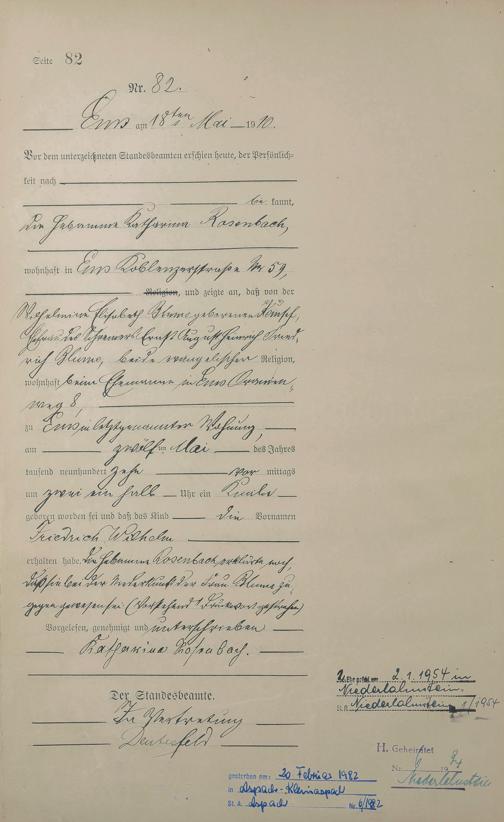 Seite 82
Nr. 82.
Ems am 18ten Mai 1910.
Vor dem unterzeichneten Standesbeamten erschien heute, der Persönlich-
keit nach
be kannt,
die Hebamme Katharina Rosenbach,
wohnhaft in Ems Koblenzerstraße Nr 59,
Religion, und zeigte an, daß von der
Wilhelmine Elisabeth Blume geborenen
Ehefrau des Schreiners Ernst August Heinrich Fried-
rich Blume, beide evangelischer Religion,
wohnhaft beim Ehemanne, in Ems Oranien-
weg 8,
zu Ems in letztgenannter Wohnung,
am zwölften Mai des Jahres
tausend neunhundert zehn vor mittags
um zwei ein halb Uhr ein Knabe
geboren worden sei und daß das Kind die Vornamen
Friedrich Wilhelm
erhalten habe. Die Hebamme Rosenbach erklärte noch,
daß sie bei der Niederkunft der Frau Blume zu-
gegen gewesen sei (Vorstehend 1 Druckwort gestrichen)
Vorgelesen, genehmigt und unterschrieben
Katharina Rosenbach.
Der Standesbeamte.
In Vertretung
2. 1. 1954 in
Niederlahnstein.
St. A. Niederlahnstein 1/1954
H. Geheiratet
Nr.
gestorben am: 20 Februar 1982
in
St. A. Nr. 6/1982